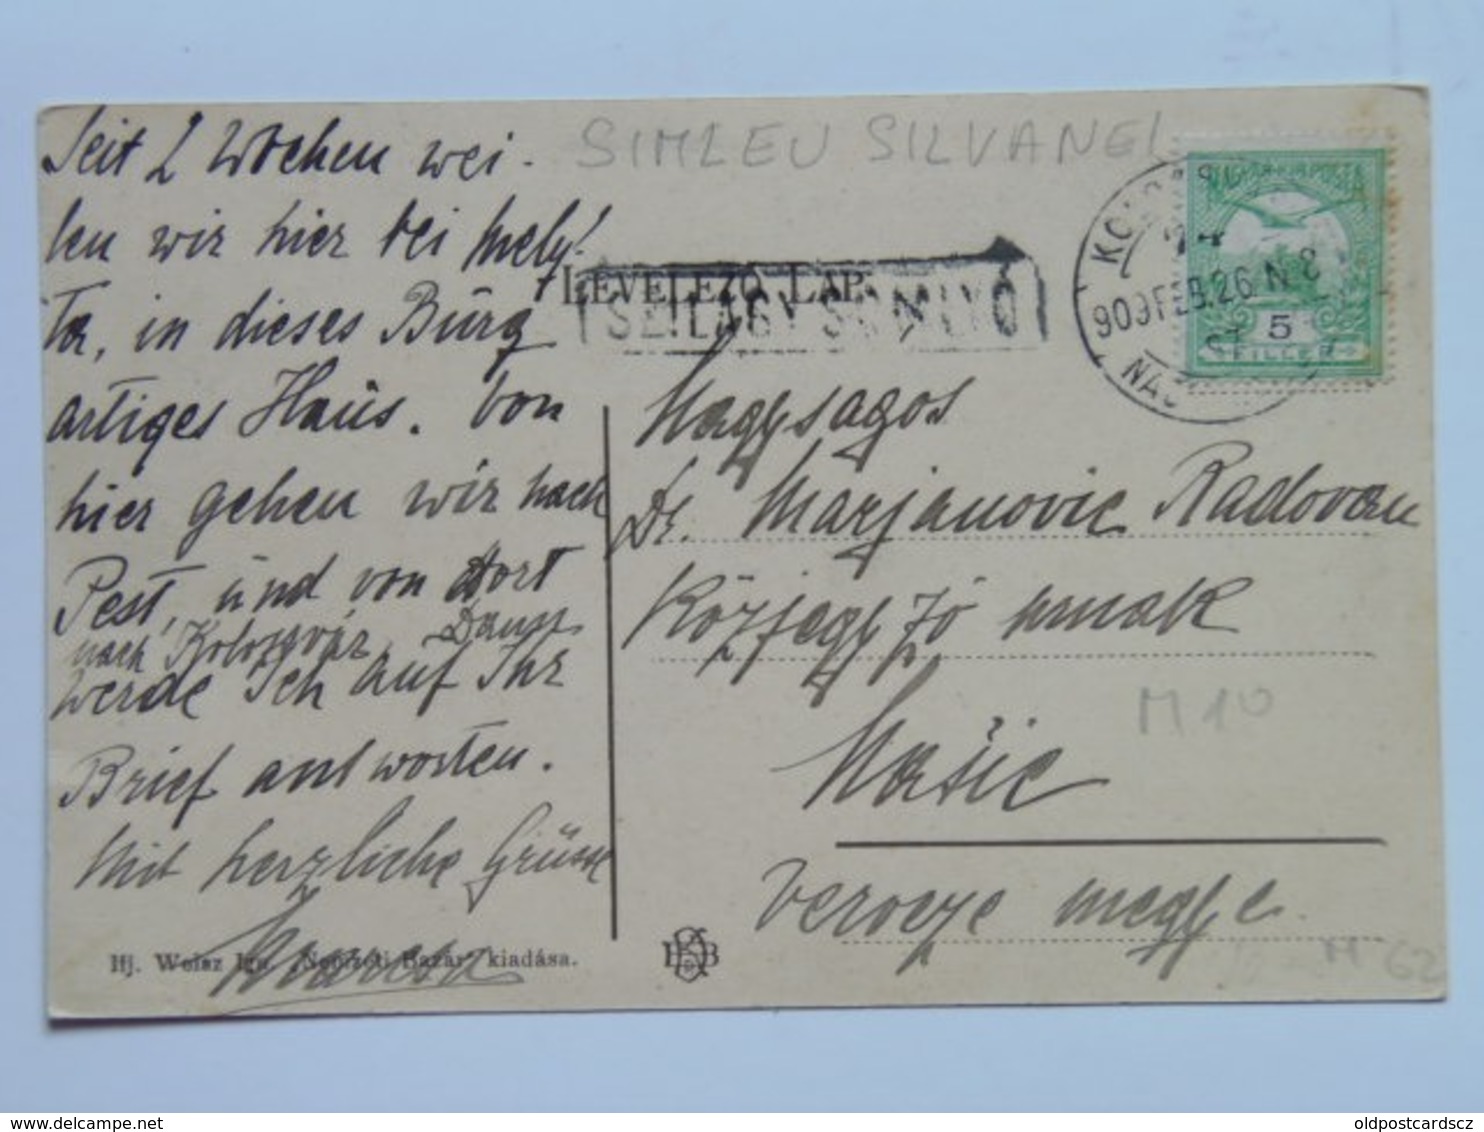 Seit 2 Wochen wei-
len wir hier bei Mely!
Ta, in dieses Burg
artiges Haus. Von
hier gehen wir nach
Pest, und von dort
nach Kolozsvár. Dann
werde Ich auf Ihr
Brief antworten.
Mit herzliche Grüsse
Ifj. Weisz Ign. "Nemzeti Bazár" kiadása.
SIMLEU SILVANEI
LEVELEZŐ LAP.
SZILÁGY SOMLYÓ
MAGYAR KIR. POSTA
909 FEB. 26 N 8
5
FILLÉR
Nagysagos
Dr. Marjanovic Radovan
Közjegyző urnak
Našic
Verocze megye
M 10
M 62
oldpostcardscz
www.delcampe.net